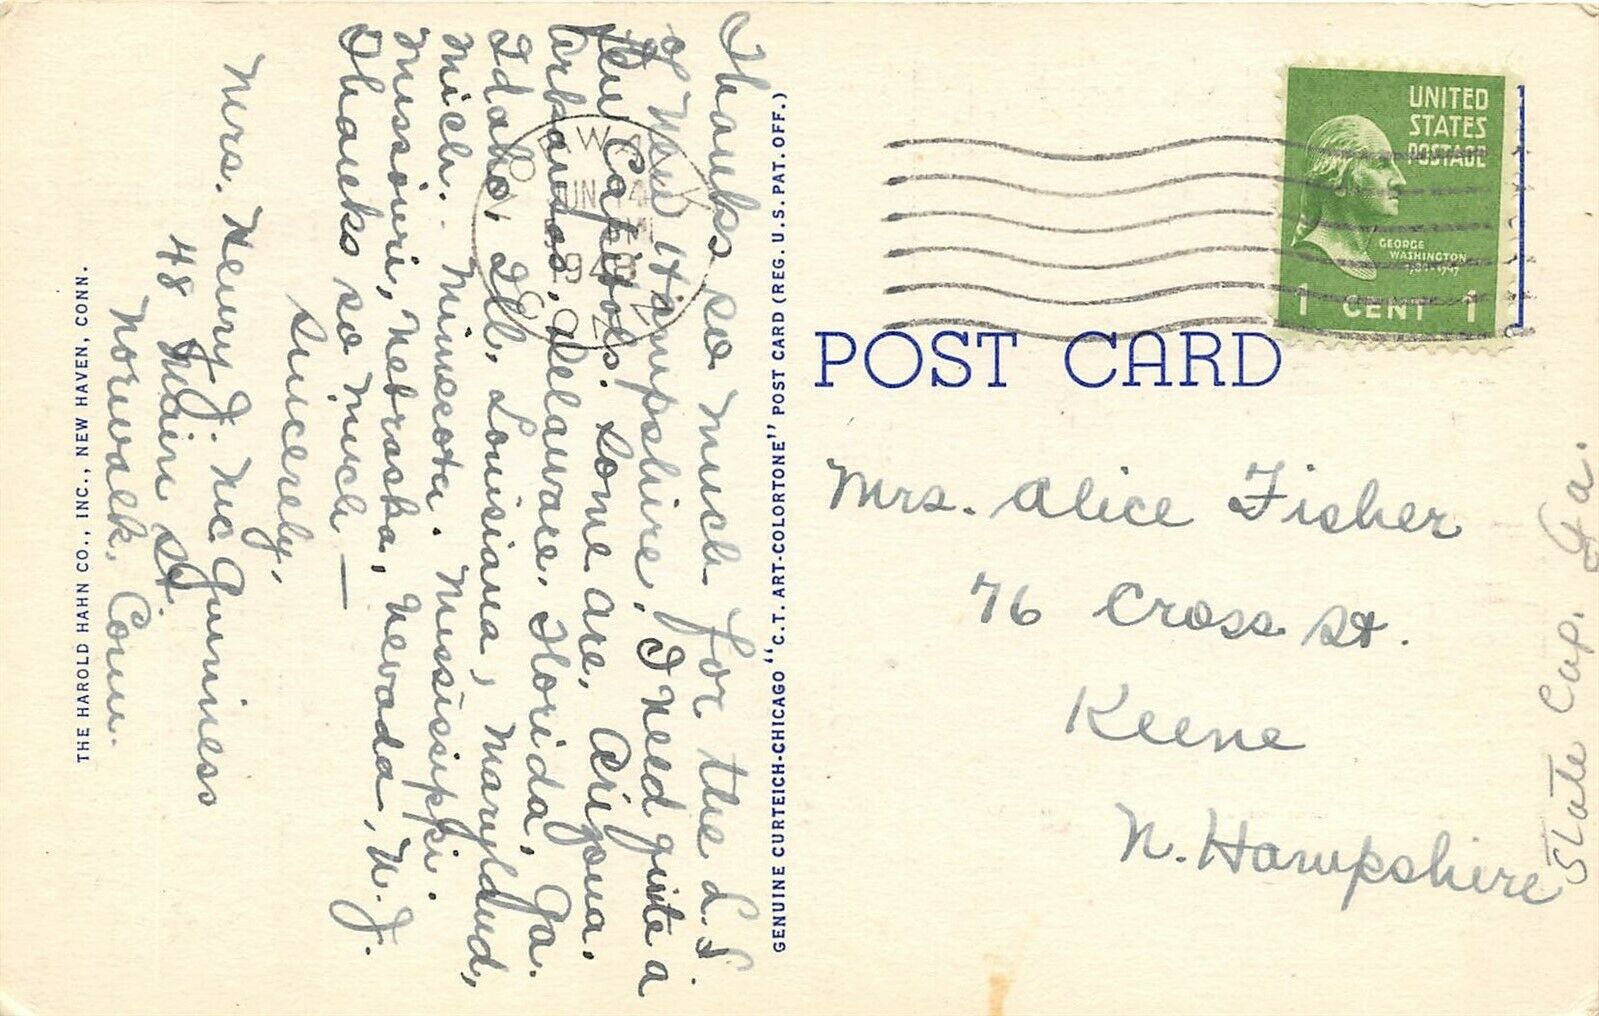 Thanks so much for the L.S.
of New Hampshire. I need quite a
few Capitols. Some are, Arizona,
Arkansas, Delaware, Florida, Ga.
Idaho, Ill, Louisiana, Maryland,
Mich.. Minnesota. Mississippi.
Missouri, Nebraska, Nevada, N.J.
Thanks so much —
Sincerely,
Mrs. Henry J. McGuinness
48 Main St
Norwalk, Conn.
THE HAROLD HAHN CO., INC., NEW HAVEN, CONN.
GENUINE CURTEICH-CHICAGO "C.T. ART-COLORTONE" POST CARD (REG. U.S. PAT. OFF.)
NORWALK
JUN 14
CONN
UNITED
STATES
POSTAGE
GEORGE
WASHINGTON
1789-1797
1 CENT 1
POST CARD
Mrs. Alice Fisher
76 Cross St.
Keene
N. Hampshire
State Cap. Ga.